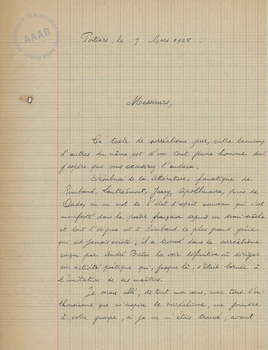 AAAB
Poitiers, le 9 Mars 1925.
Messieurs,
Ce texte de surréalisme pur, entre beaucoup
d'autres du même est d'un tout jeune homme dont
j'espère que vous excuserez l'audace.
de la littérature, fanatique de
Rimbaud, Lautréamont, Jarry, Apollinaire, puis de
Dada, en un mot de l'état d'esprit nouveau qui s'est
manifesté dans la poésie française depuis un demi-siècle
et dont l'origine est à Rimbaud, le plus grand génie
qui ait jamais existé, il a trouvé dans le surréalisme
conçu par André Breton la voie définitive où diriger
son activité poétique qui, jusque là, s'était bornée à
l'imitation de ses maîtres.
Je serais allé, de tout mon cœur, avec tout l'en-
thousiasme que m'inspire le surréalisme, me joindre
à votre groupe, si je ne m'étais trouvé, avant